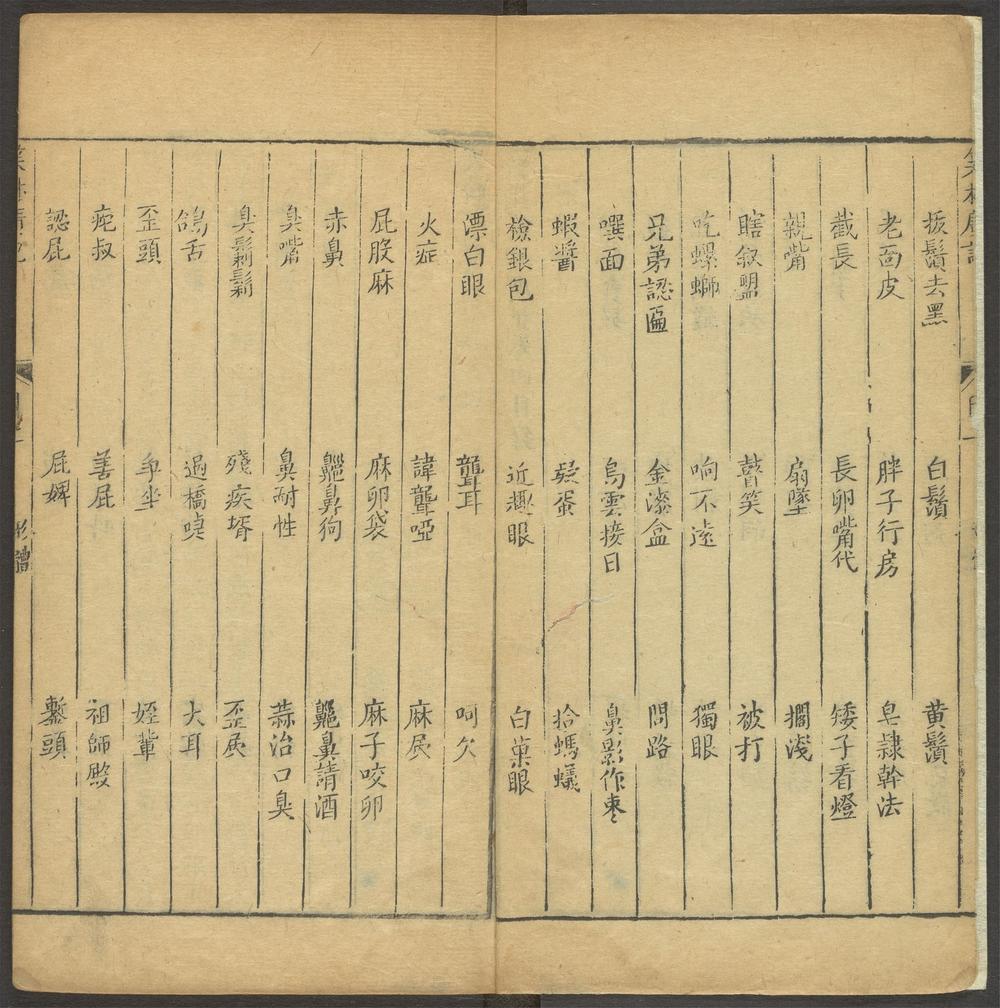 笑林廣記
拔鬚去黑 白鬚 黄鬚
老面皮 胖子行房 皂隷幹法
截長 長卵嘴代 矮子看燈
親嘴 扇墜 擱淺
瞎叙盟 瞽笑 被打
吃螺螄 响不遠 獨眼
兄弟認匾 金漆盒 問路
噀面 烏雲接日 鼻影作棗
蝦醬 疑蛋 拾螞蟻
檢銀包 近趣眼 白菓眼
漂白眼 聾耳 呵欠
火症 諱聾啞 麻屄
屁股麻 麻卵袋 麻子咬卵
赤鼻 齆鼻狗 齆鼻請酒
臭嘴 鼻耐性 蒜治口臭
臭鬎鬁 殘疾壻 歪屄
鴿舌 過橋嚏 大耳
歪頭 爭坐 姪輩
疤叔 善屁 祖師殿
認屁 屁婢 鏨頭